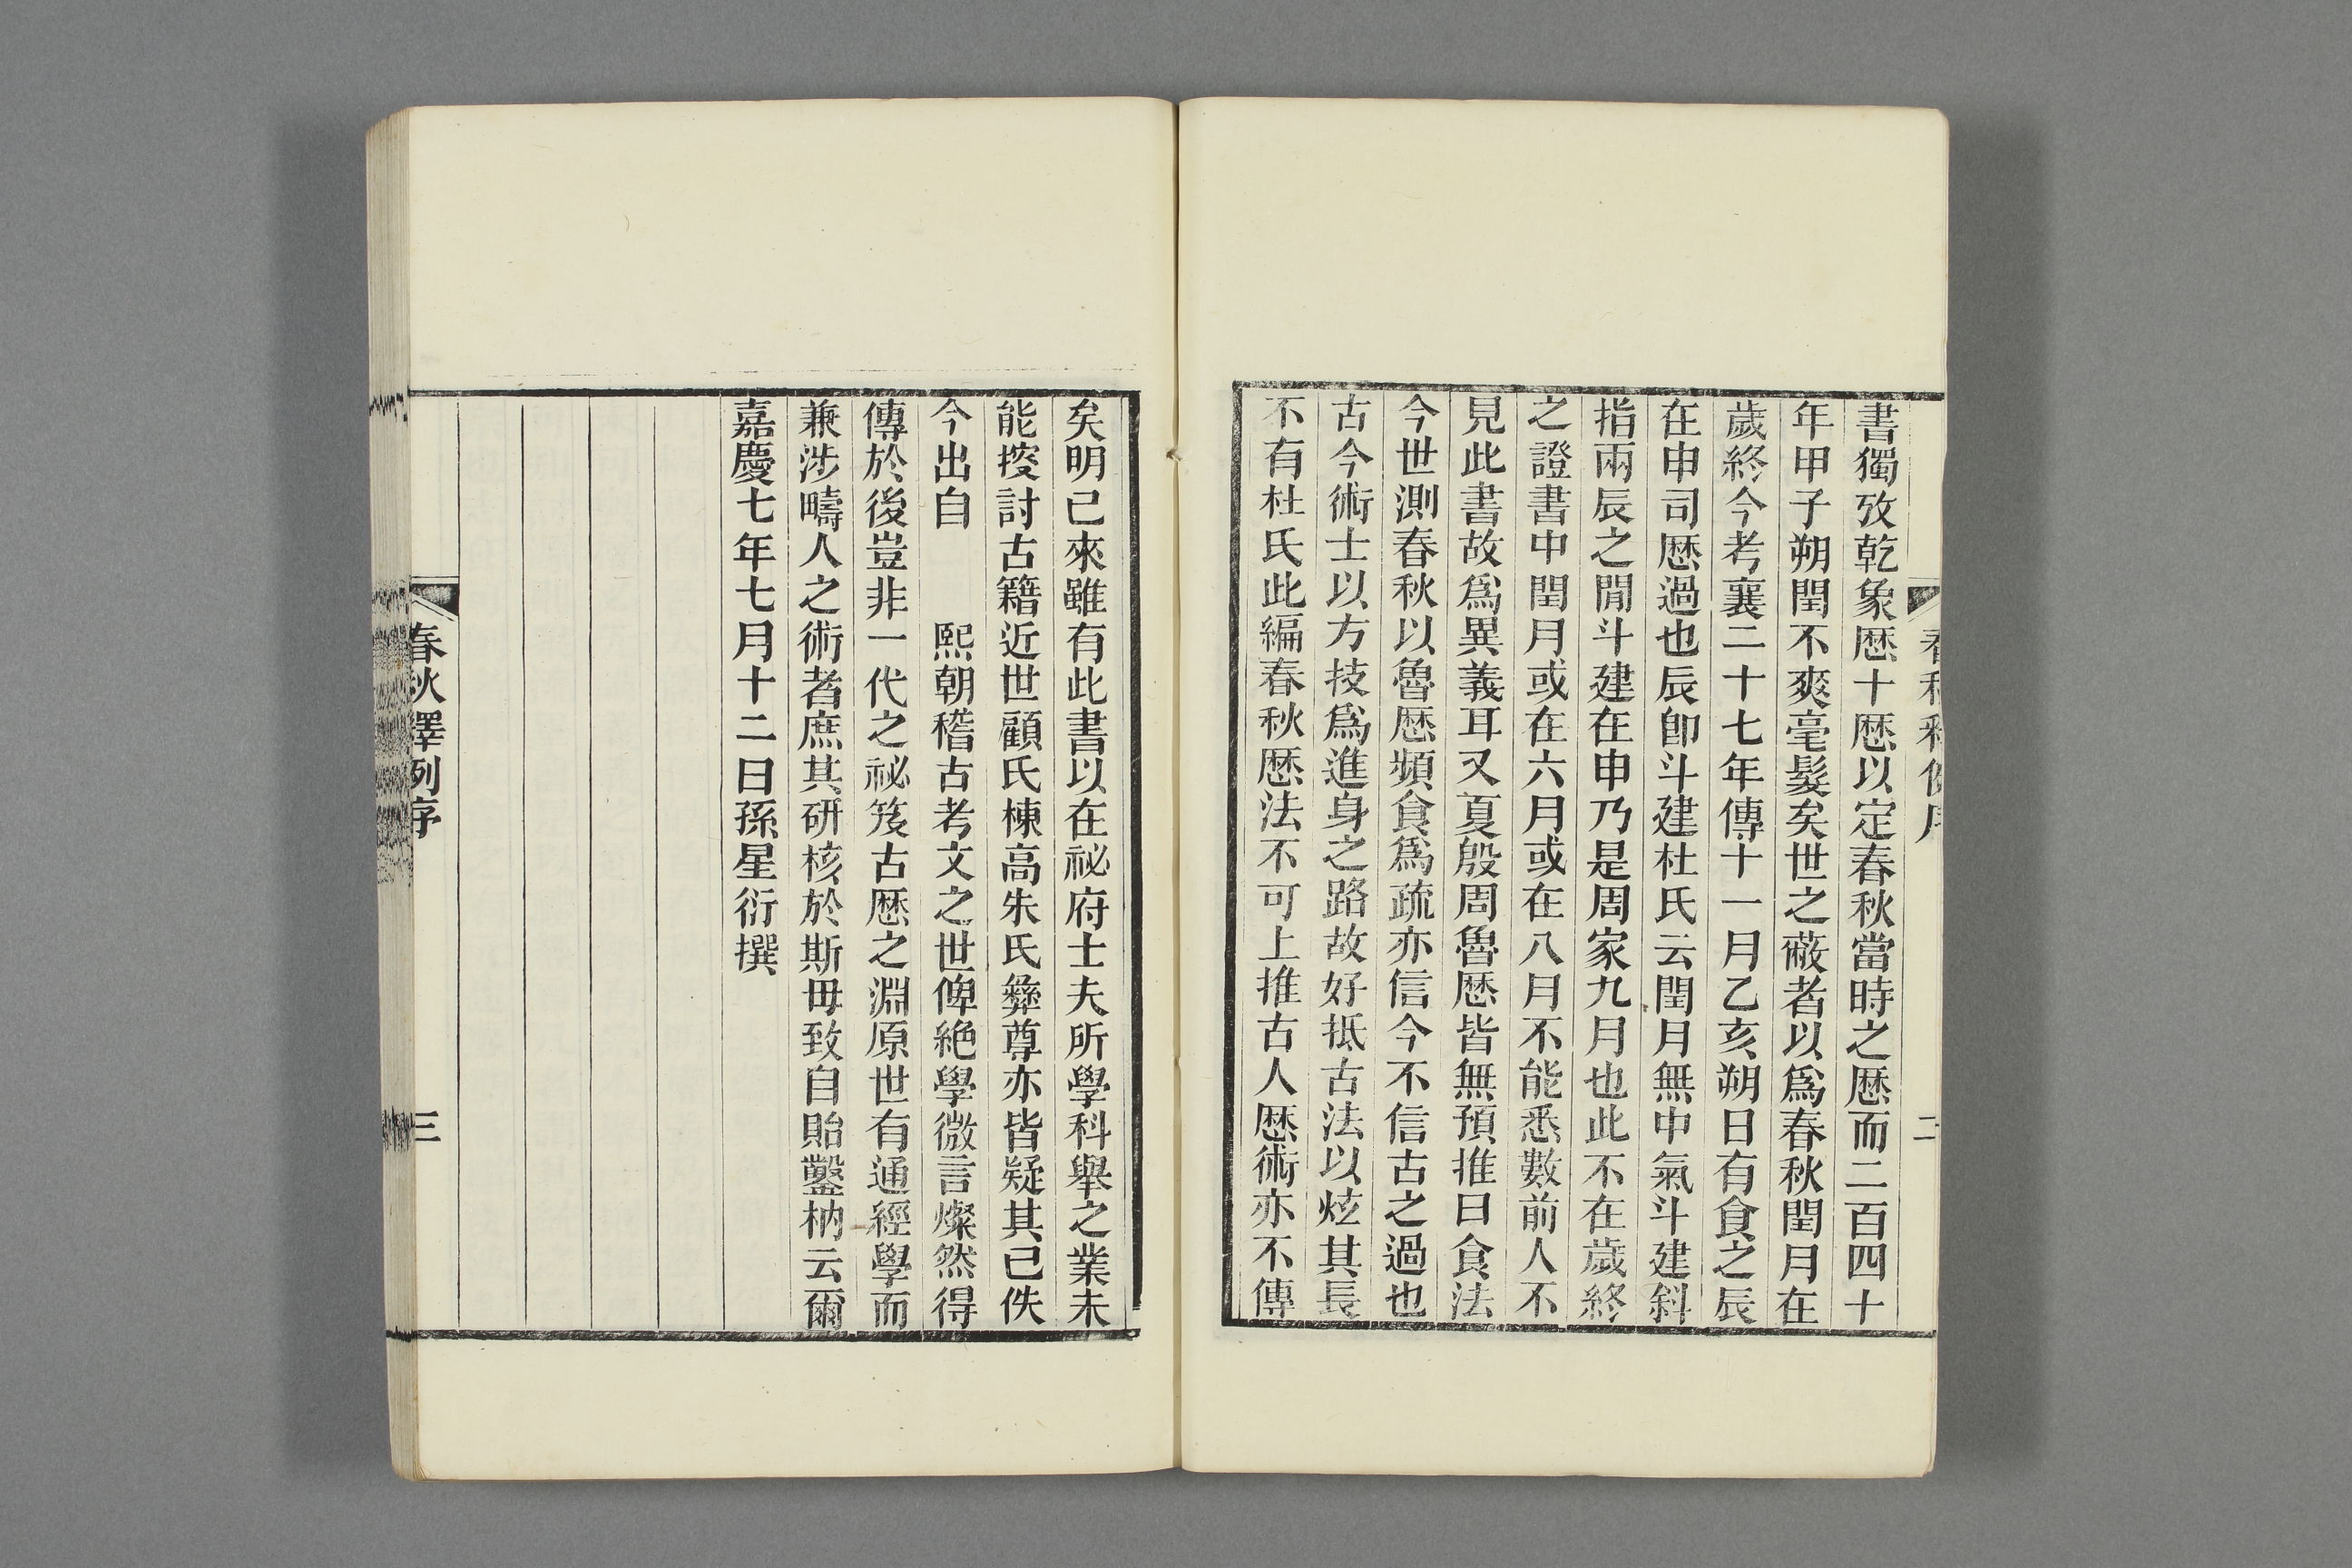 春秋釋例序
二
書獨攷乾象厯十厯以定春秋當時之厯而二百四十
年甲子朔閏不爽毫髮矣世之蔽者以爲春秋閏月在
歲終今考襄二十七年傳十一月乙亥朔日有食之辰
在申司厯過也辰卽斗建杜氏云閏月無中氣斗建斜
指兩辰之閒斗建在申乃是周家九月也此不在歲終
之證書中閏月或在六月或在八月不能悉數前人不
見此書故爲異義耳又夏殷周魯厯皆無預推日食法
今世測春秋以魯厯頻食爲疏亦信今不信古之過也
古今術士以方技爲進身之路故好抵古法以炫其長
不有杜氏此編春秋厯法不可上推古人厯術亦不傳
矣明已來雖有此書以在祕府士夫所學科舉之業未
能㨙討古籍近世顧氏棟高朱氏彝尊亦皆疑其已佚
今出自　　熙朝稽古考文之世俾絶學微言燦然得
傳於後豈非一代之祕笈古厯之淵原世有通經學而
兼涉疇人之術者庶其研核於斯毋致自貽鑿枘云爾
嘉慶七年七月十二日孫星衍撰
春秋釋列序
三